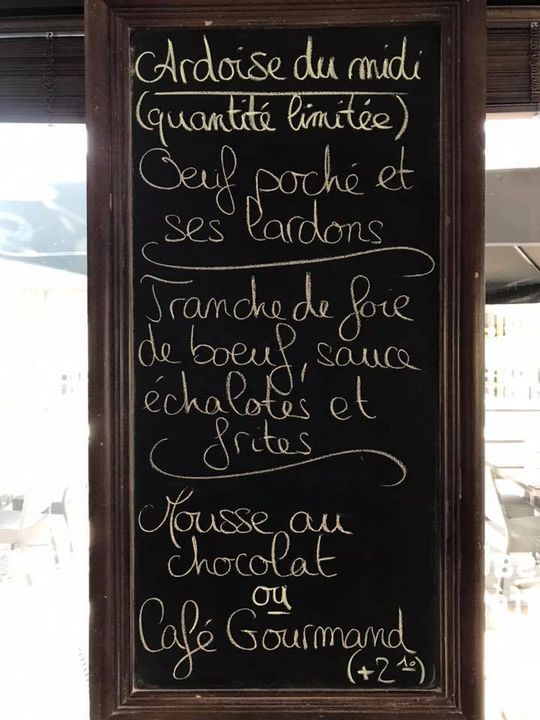 Ardoise du midi
(quantité limitée)
Oeuf poché et
ses lardons
Tranche de foie
de boeuf, sauce
échalotes et
frites
Mousse au
chocolat
ou
Café Gourmand
(+2 10)